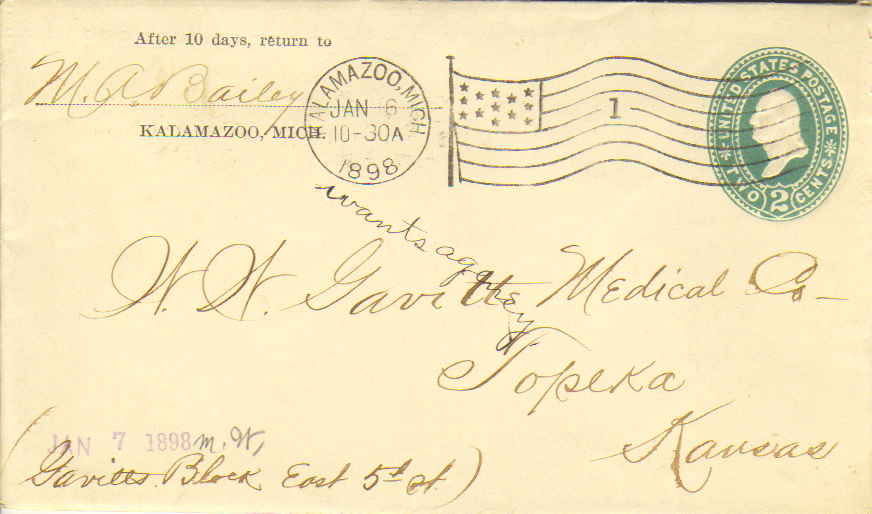 After 10 days, return to
M. A. Bailey
KALAMAZOO, MICH.
KALAMAZOO, MICH.
JAN 6
10-30A
1898
1
UNITED STATES POSTAGE
TWO 2 CENTS
wants agency
W. W. Gavitts Medical Co
Topeka
Kansas
JAN 7 1898 M. W,
(Gavitts Block East 5th st.)